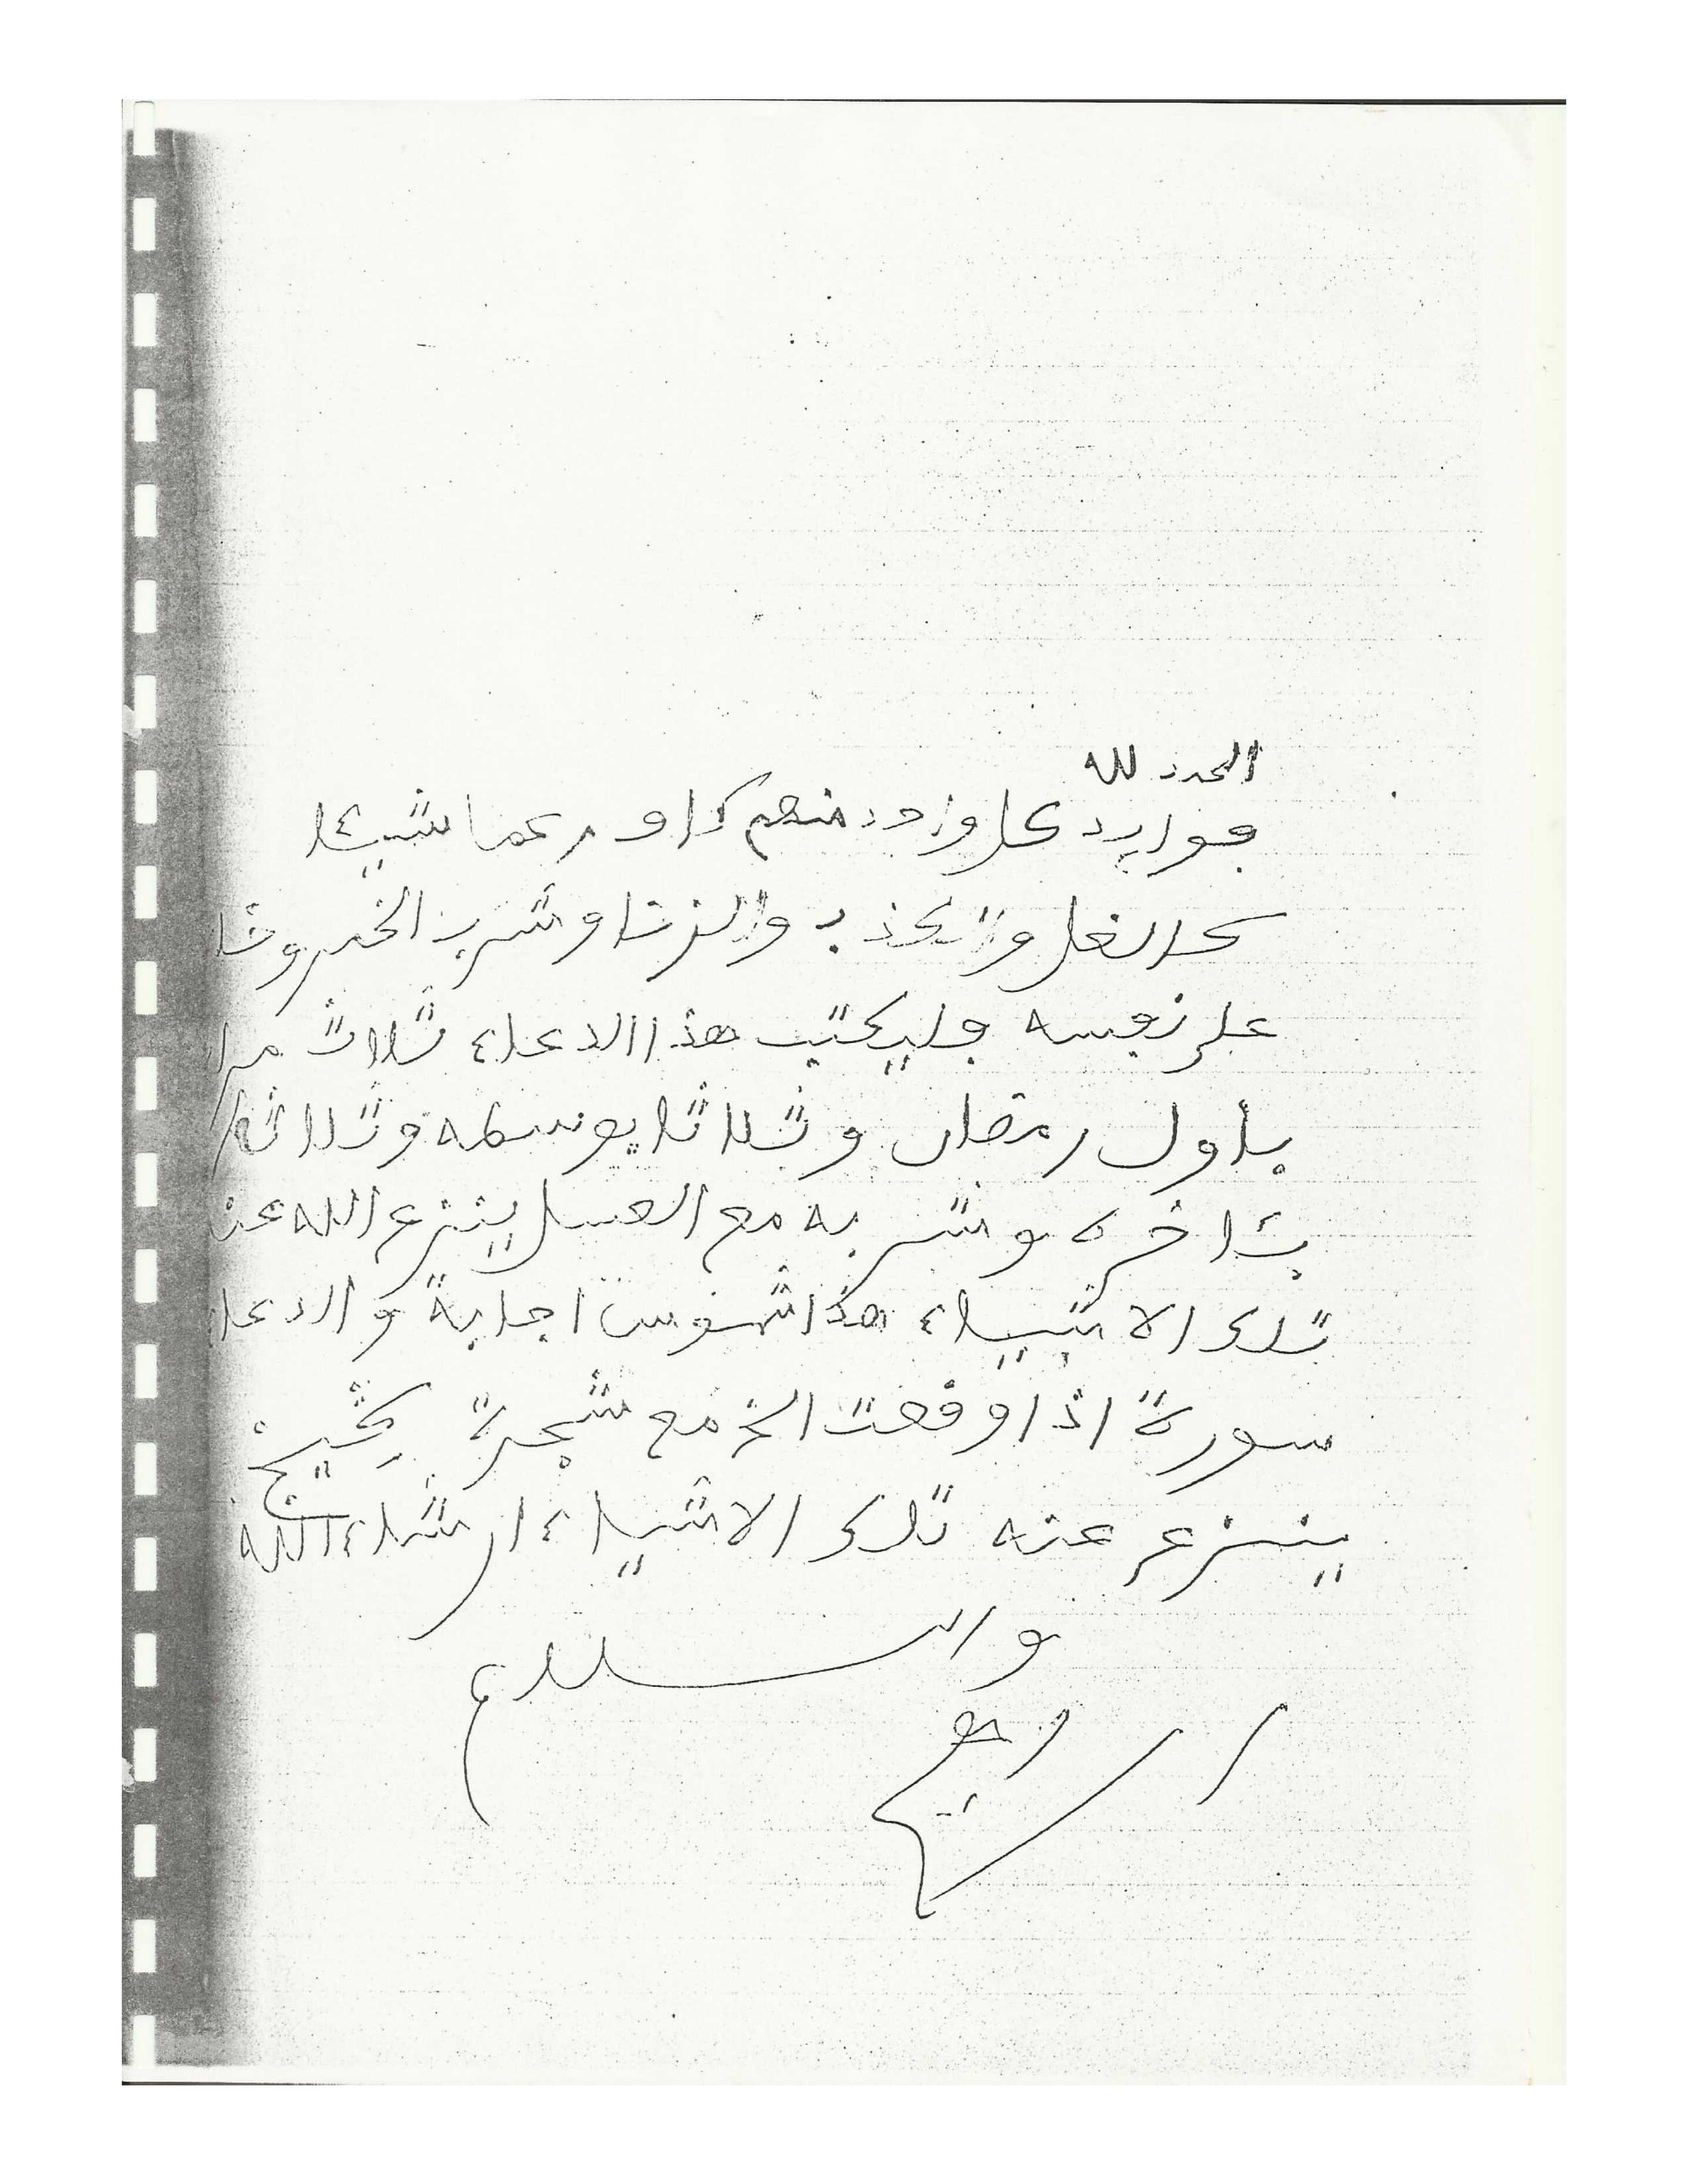 الحمد لله
فوايد كل واحد منهم كذا و رعما شيئا
كالغل والكذب والزنا وشرب الخمر وخا
على نفسه فليكتب هذا الدعاء ثلاث مرا
بأول رمضان وثلاثا بوسطه وثلاثا
بئاخره وشربه مع العسل ينزع الله عن
تلك الاشياء هذا اجابة والدعا
سورة اذا وقعت الخ مع شجرة
ينزع عنه تلك الاشياء ان شاء الله
والسلام